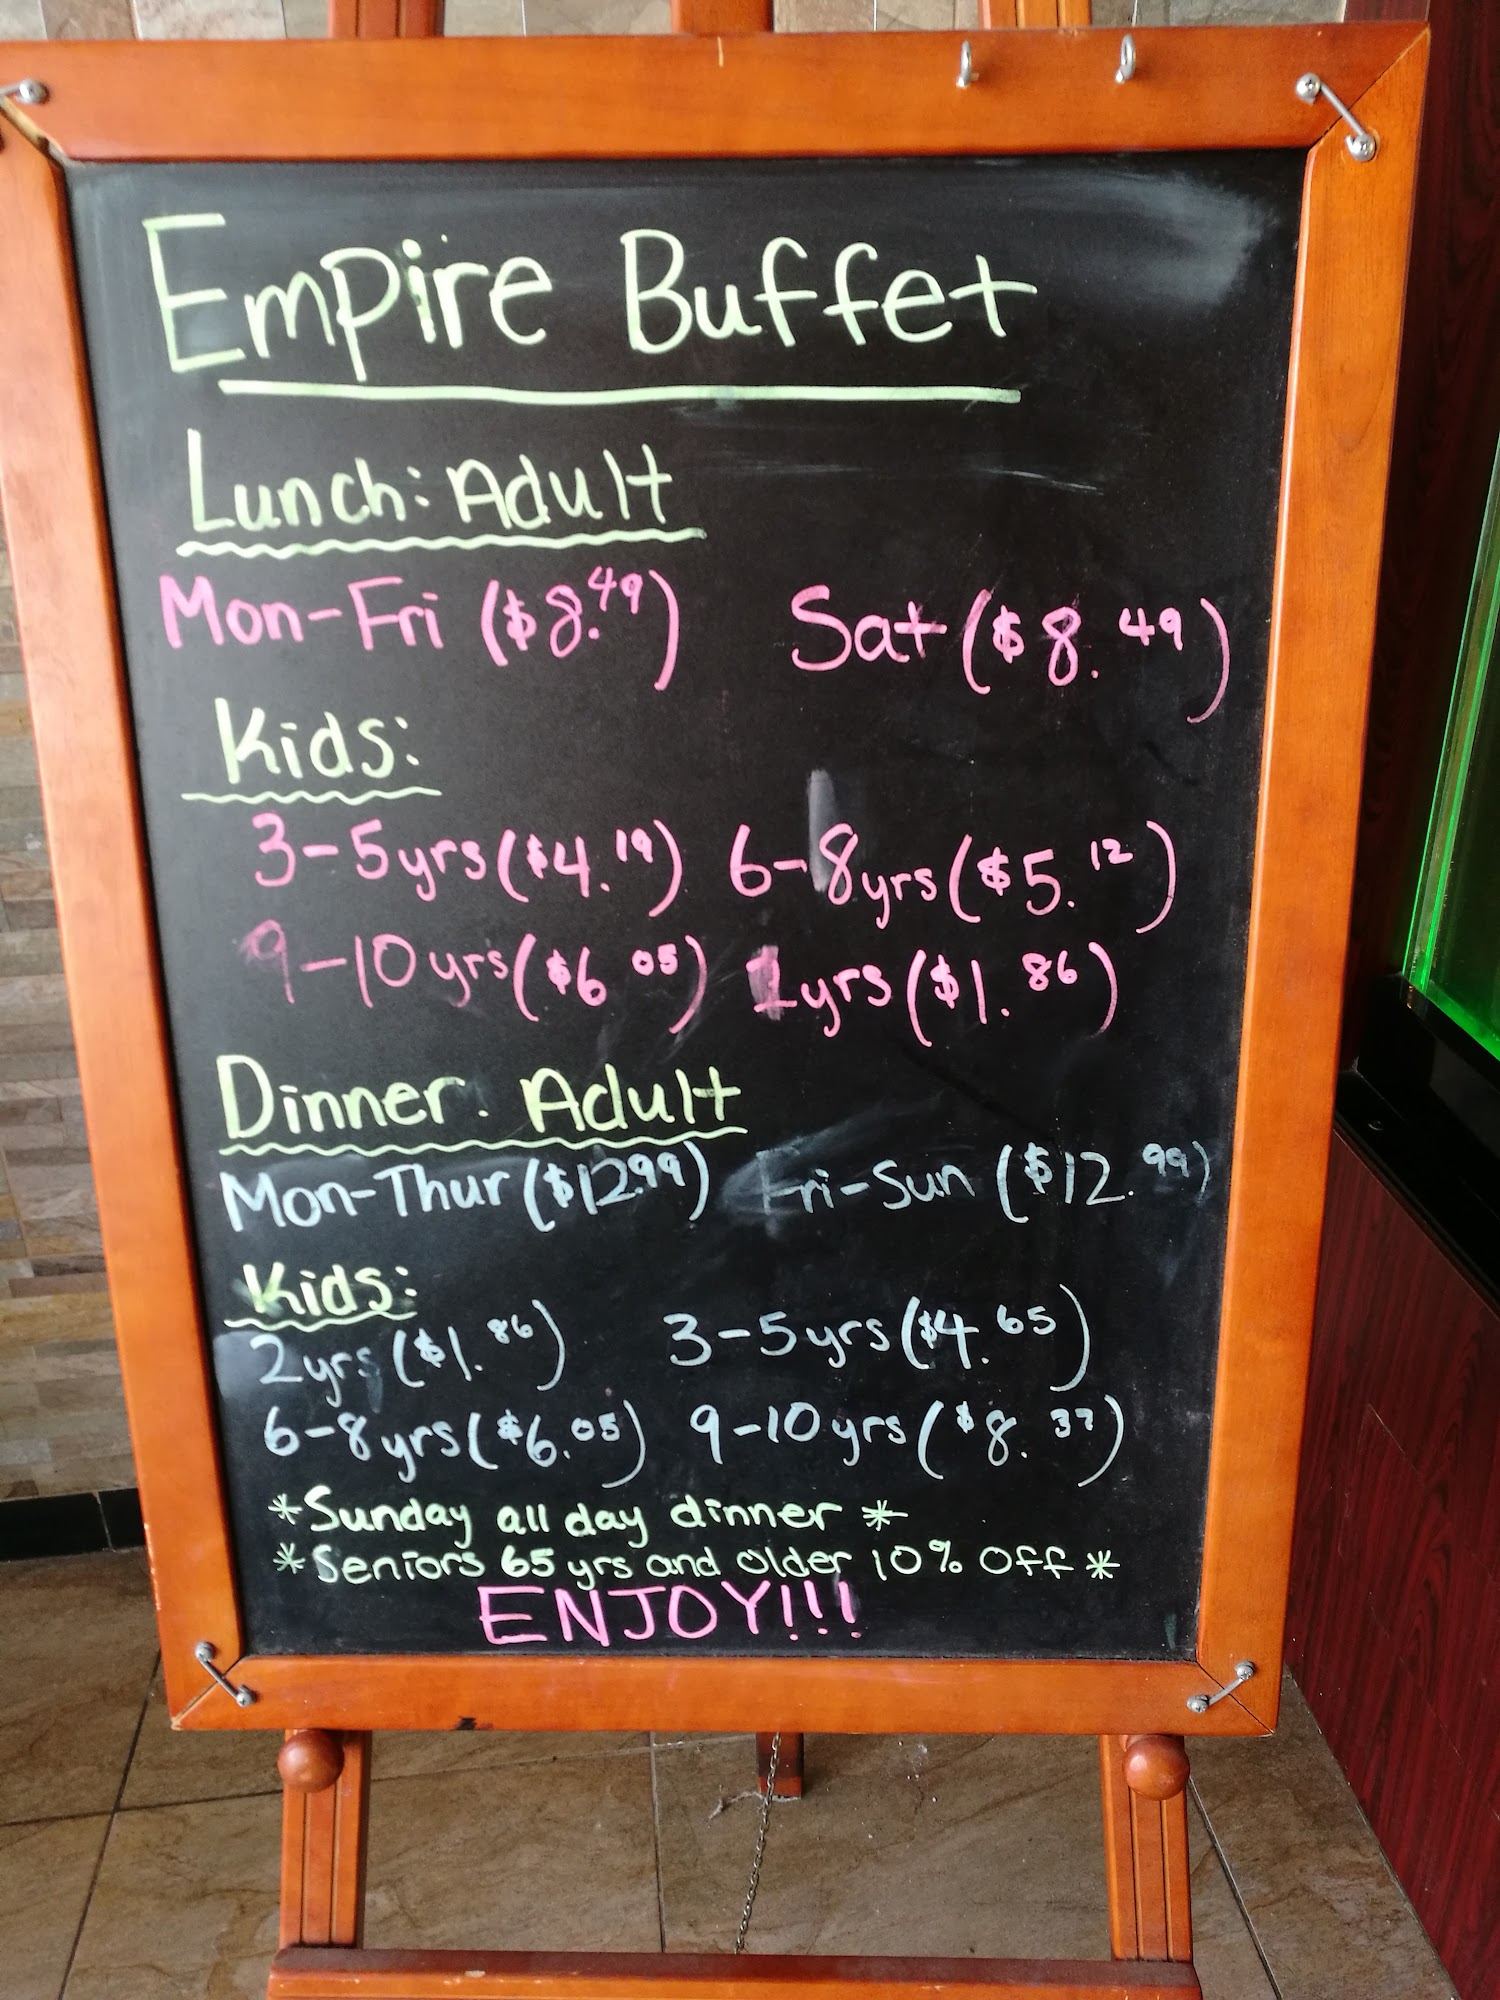 Empire Buffet
Lunch: Adult
Mon-Fri ($8.49) Sat ($8.49)
Kids:
3-5yrs ($4.19) 6-8yrs ($5.12)
9-10yrs ($6 05) yrs ($1.86)
Dinner. Adult
Mon-Thur ($12.99) Fri-Sun ($12.99)
Kids:
2yrs ($1.86) 3-5yrs ($4.65)
6-8yrs ($6.05) 9-10yrs ($8.37)
*Sunday all day dinner *
*Seniors 65 yrs and older 10% off *
ENJOY!!!